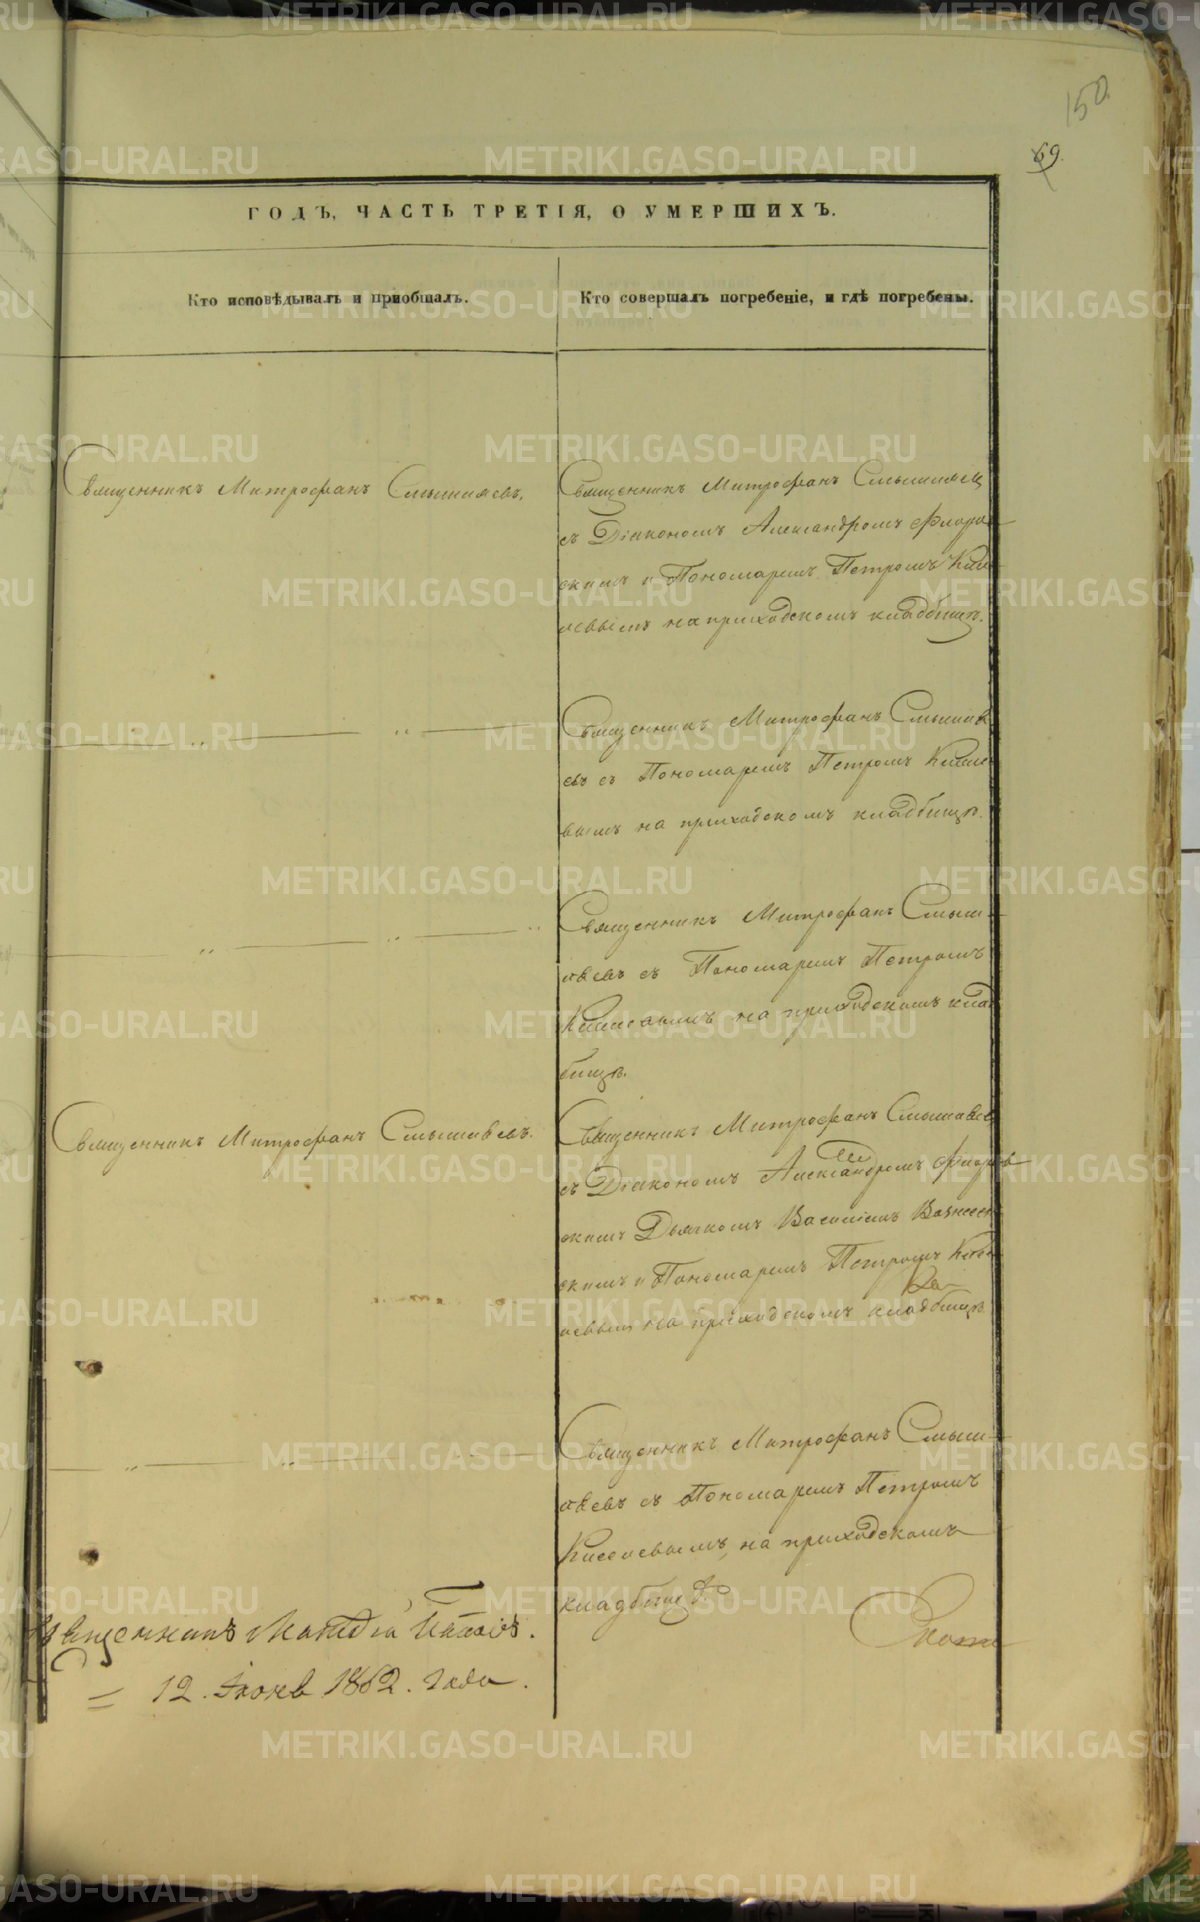 150.
69.
ГОДЪ, ЧАСТЬ ТРЕТІЯ, О УМЕРШИХЪ.
Кто исповѣдывалъ и пріобщалъ.
Кто совершалъ погребеніе, и гдѣ погребены.
Священникъ Митрофанъ Смышляевъ.
Священникъ Митрофанъ Смышляевъ
съ Діакономъ Александромъ Флоров
скимъ и Пономаремъ Петромъ Кисе
левымъ на приходскомъ кладбищѣ.
Священникъ Митрофанъ Смышля
евъ съ Пономаремъ Петромъ Киселе
вымъ на приходскомъ кладбищѣ.
Священникъ Митрофанъ Смыш-
ляевъ съ Пономаремъ Петромъ
Киселевымъ на приходскомъ клад
бищѣ.
Священникъ Митрофанъ Смышляевъ.
Священникъ Митрофанъ Смышляевъ
съ Діакономъ Александромъ Флоров
скимъ Дьячкомъ Василіемъ Вознесен
скимъ и Пономаремъ Петромъ Кисе
левымъ на приходскомъ кладбищѣ
Священникъ Митрофанъ Смыш-
ляевъ съ Пономаремъ Петромъ
Киселевымъ на приходскомъ
кладбищѣ.
Священникъ
12. 1862. года.
METRIKI.GASO-URAL.RU